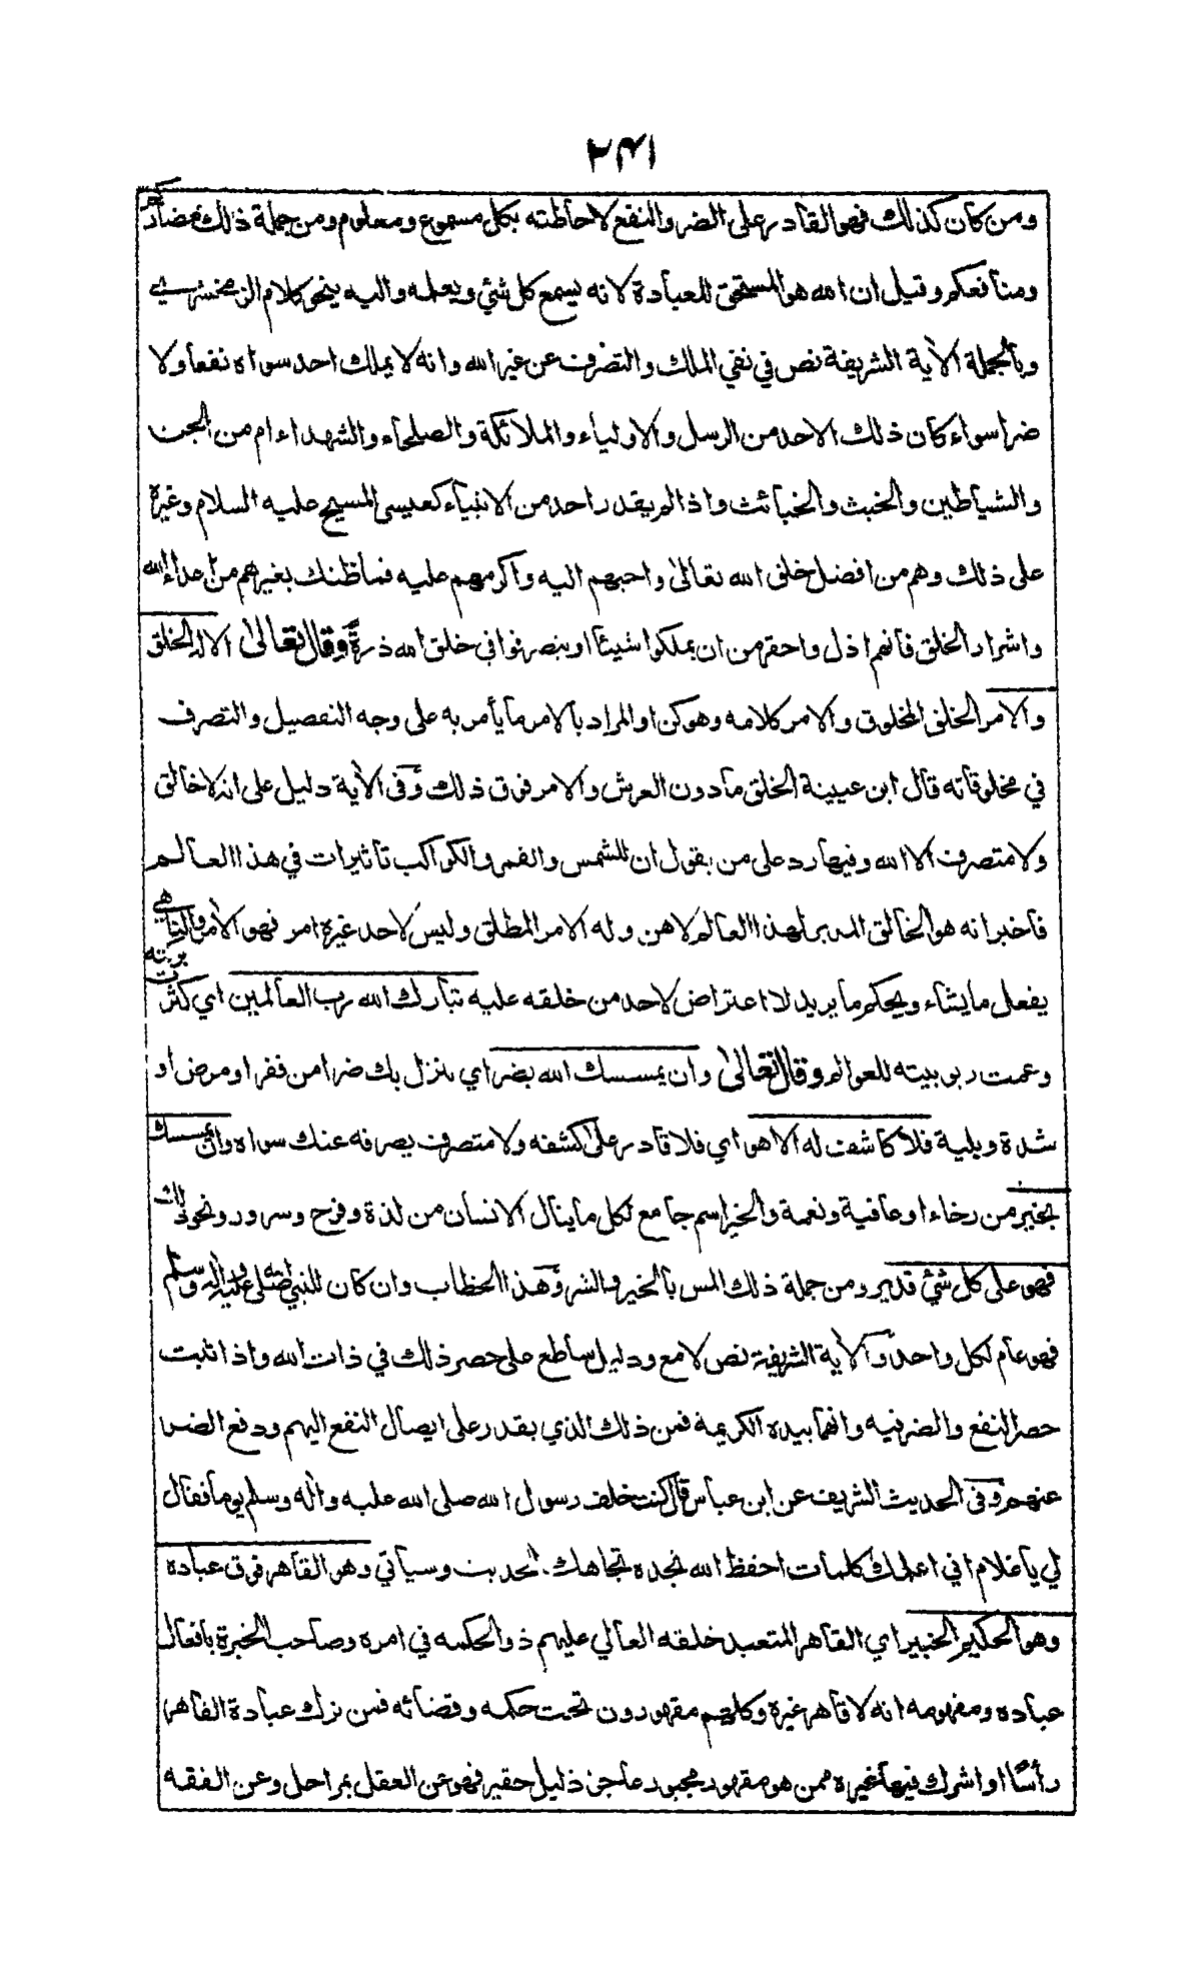 ٢٤١
ومن كان كذلك فهو القادر على الضر والنفع لاحاطته بكل مسموع ومعلوم ومن جملة ذلك مضاركم
ومنافعكم وقيل ان الله هو المستحق للعبادة لانه يسمع كل شئ ويعلمه واليه ينحو كلام الزمخشري
وبالجملة الآية الشريفة نص في نفي الملك والتصرف عن غير الله وانه لا يملك احد سواه نفعا ولا
ضرا سواء كان ذلك الاحد من الرسل والاولياء والملائكة والصلحاء والشهداء ام من الجن
والشياطين والخبث والخبائث واذا لم يقدر احد من الانبياء كعيسى المسيح عليه السلام وغيره
على ذلك وهم من افضل خلق الله تعالى واحبهم اليه واكرمهم عليه فما ظنك بغيرهم من اعداء الله
واشرار الخلق فانهم اذل واحقر من ان يملكوا شيئا او يتصرفوا في خلق الله ذرة وقال تعالى الا له الخلق
والامر الخلق المخلوق والامر كلامه وهو كن او المراد بالامر ما يأمر به على وجه التفصيل والتصرف
في مخلوقاته قال ابن عيينة الخلق ما دون العرش والامر فوق ذلك وفي الآية دليل على انه لا خالق
ولا متصرف الا الله وفيها رد على من يقول ان للشمس والقمر والكواكب تأثيرات في هذا العالم
فاخبر انه هو الخالق المدبر لهذا العالم لا هن وله الامر المطلق وليس لاحد غيره امر فهو الآمر والناهي
يفعل ما يشاء ويحكم ما يريد لا اعتراض لاحد من خلقه عليه تبارك الله رب العالمين اي كثرت بركته
وعمت ربوبيته للعوالم وقال تعالى وان يمسسك الله بضر اي ينزل بك ضرا من فقر او مرض او
شدة وبلية فلا كاشف له الا هو اي فلا قادر على كشفه ولا متصرف يصرفه عنك سواه وان يمسسك
بخير من رخاء او عافية ونعمة والخير اسم جامع لكل ما ينال الانسان من لذة وفرح وسرور ونحو ذلك
فهو على كل شئ قدير ومن جملة ذلك المس بالخير والشر وهذا الخطاب وان كان للنبي صلى الله عليه واله وسلم
فهو عام لكل واحد والآية الشريفة نص لامع ودليل ساطع على حصر ذلك في ذات الله واذا ثبت
حصر النفع والضر فيه وانهما بيده الكريمة فمن ذلك الذي يقدر على ايصال النفع اليهم ودفع الضر
عنهم وفي الحديث الشريف عن ابن عباس قال كنت خلف رسول الله صلى الله عليه واله وسلم يوما فقال
لي يا غلام اني اعلمك كلمات احفظ الله تجده تجاهك. الحديث وسيأتي وهو القاهر فوق عباده
وهو الحكيم الخبير اي القاهر المتعبد خلقه العالي عليهم ذو الحكمه في امره وصاحب الخبرة بافعال
عباده ومفهومه انه لا قاهر غيره وكلهم مقهورون تحت حكمه وقضائه فمن ترك عبادة القاهر
رأسًا او اشرك فيها غيره ممن هو مقهور مجبور عاجز ذليل حقير فهو عن العقل بمراحل وعن الفقه